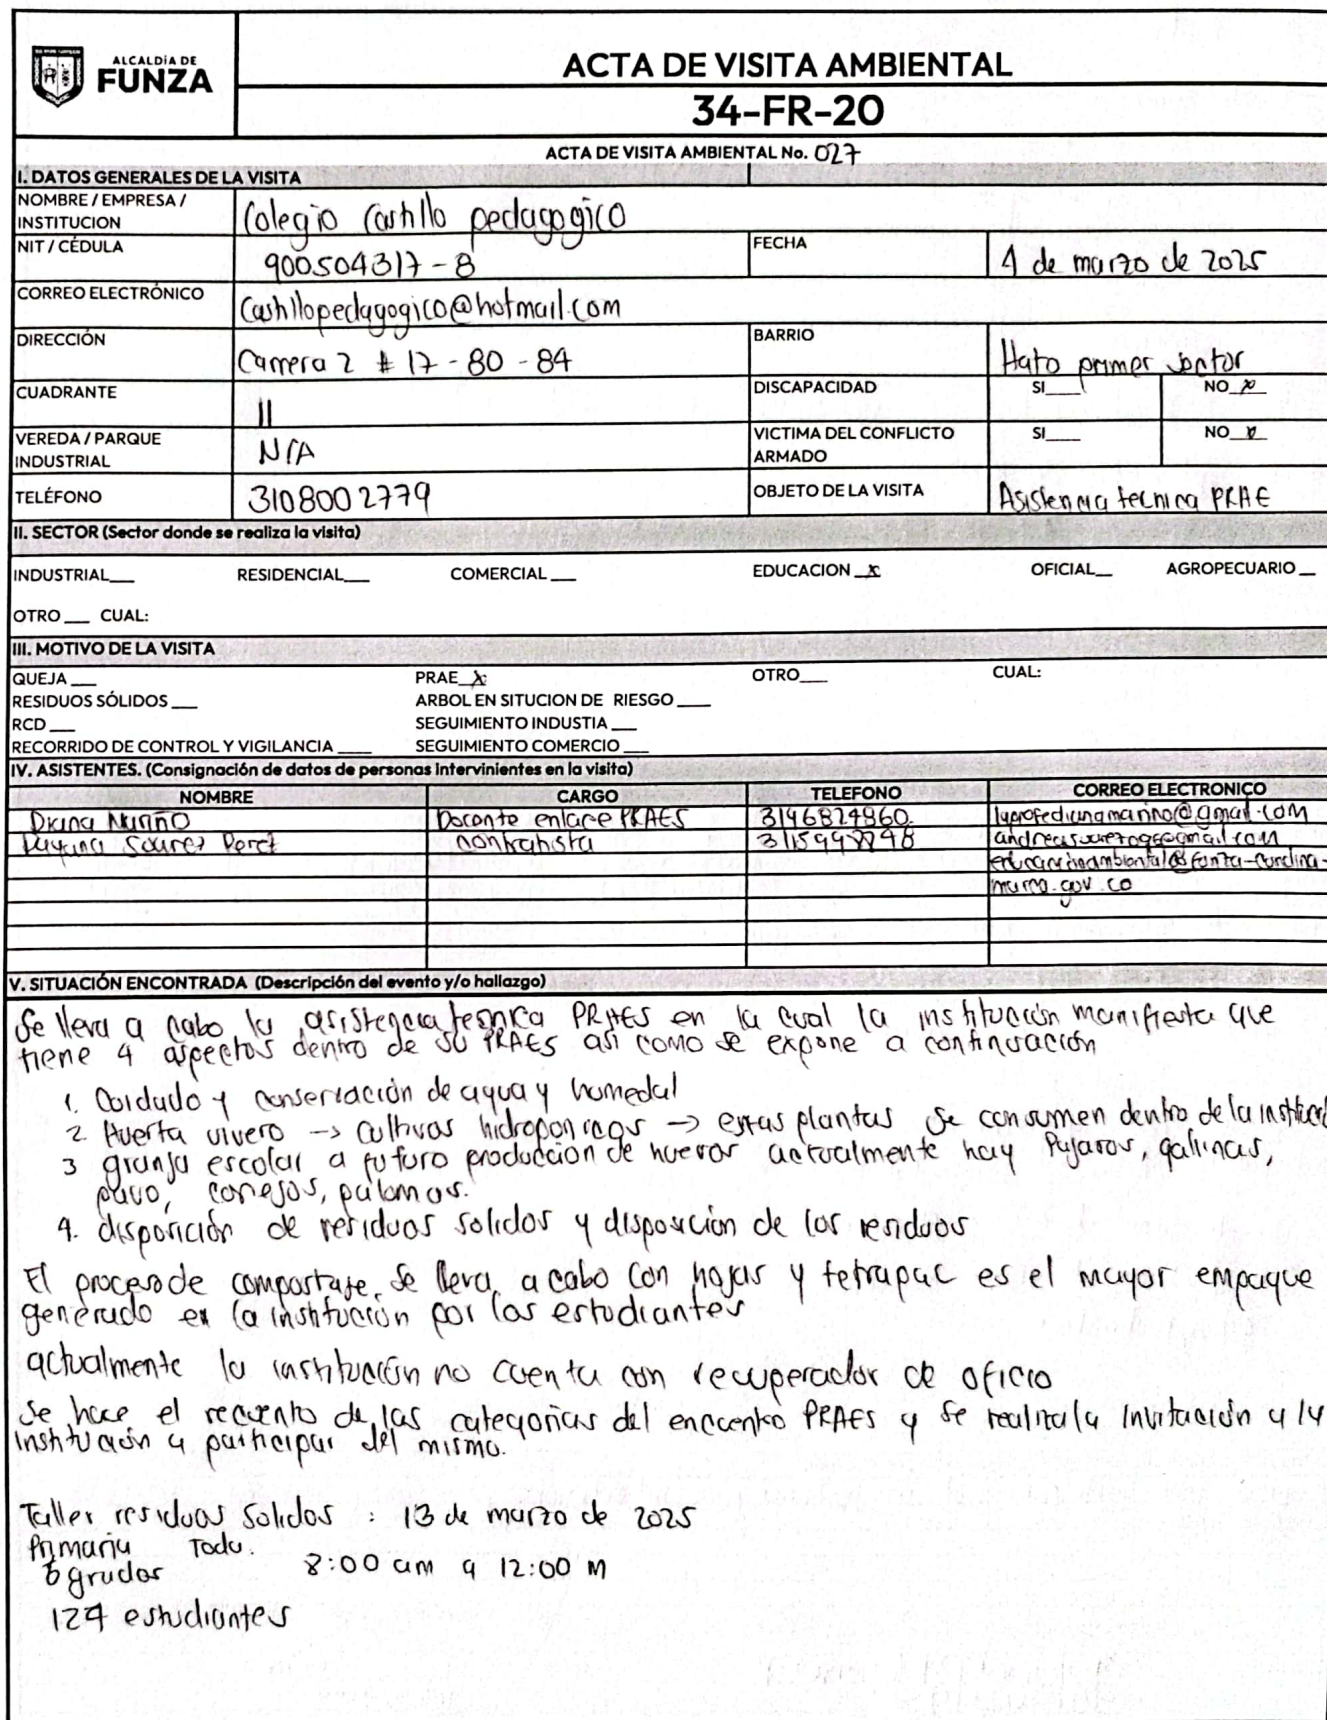 ALCALDÍA DE
FUNZA
ACTA DE VISITA AMBIENTAL
34-FR-20
ACTA DE VISITA AMBIENTAL No. 027
I. DATOS GENERALES DE LA VISITA
NOMBRE / EMPRESA / INSTITUCION Colegio Castillo pedagogico
NIT / CÉDULA 900504317-8 FECHA 4 de marzo de 2025
CORREO ELECTRÓNICO Castillopedagogico@hotmail.com
DIRECCIÓN Carrera 2 # 17-80-84 BARRIO Hato primer sector
CUADRANTE 11 DISCAPACIDAD SI___ NO_x_
VEREDA / PARQUE INDUSTRIAL N/A VICTIMA DEL CONFLICTO ARMADO SI___ NO_x_
TELÉFONO 3108002779 OBJETO DE LA VISITA Asistencia tecnica PRAE
II. SECTOR (Sector donde se realiza la visita)
INDUSTRIAL___ RESIDENCIAL___ COMERCIAL___ EDUCACION_x_ OFICIAL__ AGROPECUARIO__
OTRO___ CUAL:
III. MOTIVO DE LA VISITA
QUEJA___ PRAE_x_ OTRO___ CUAL:
RESIDUOS SÓLIDOS___ ARBOL EN SITUCION DE RIESGO____
RCD___ SEGUIMIENTO INDUSTIA___
RECORRIDO DE CONTROL Y VIGILANCIA____ SEGUIMIENTO COMERCIO___
IV. ASISTENTES. (Consignación de datos de personas intervinientes en la visita)
NOMBRE CARGO TELEFONO CORREO ELECTRONICO
Diana Nariño Docente enlace PRAES 3146824860.
Suarez Perez contratista
V. SITUACIÓN ENCONTRADA (Descripción del evento y/o hallazgo)
Se lleva a cabo la asistencia tecnica PRAES en la cual la institución manifiesta que
tiene 4 aspectos dentro de su PRAES asi como se expone a continuación
1. Cuidado y conservación de agua y humedal
2 Huerta vivero -> Cultivos hidroponicos -> estas plantas se consumen dentro de la
3 granja escolar a futuro producción de huevos actualmente hay Pajaros, gallinas,
pavo, conejos, palomas.
4. disposición de residuos solidos y disposición de los residuos
El proceso de compostaje, se lleva a cabo con hojas y tetrapac es el mayor empaque
generado en la institución por los estudiantes
actualmente la institución no cuenta con recuperador de oficio
Se hace el recuento de las categorias del encuentro PRAES y se realiza la invitación a la
institución a participar del mismo.
Taller residuos Solidos : 13 de marzo de 2025
Primaria Toda.
6 grados 8:00 am a 12:00 M
124 estudiantes